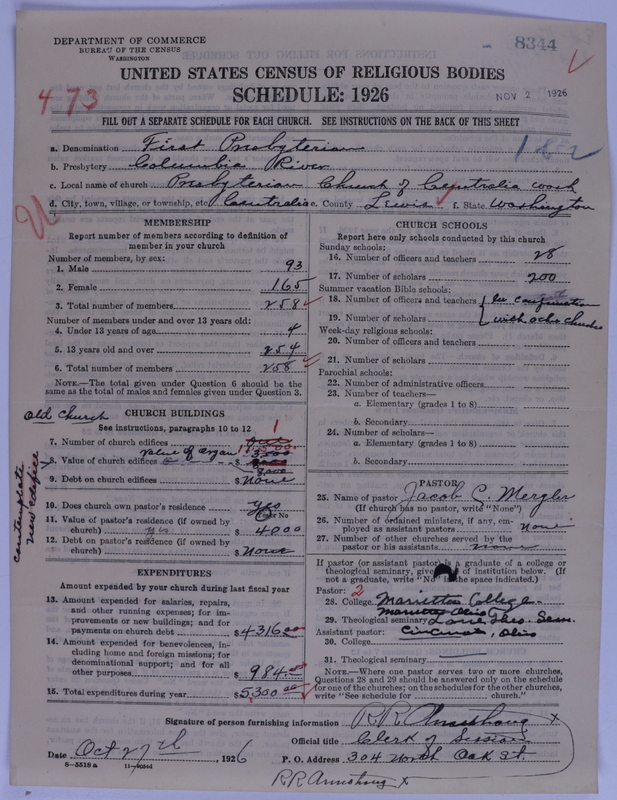 DEPARTMENT OF COMMERCE
BUREAU OF THE CENSUS
WASHINGTON
8344
UNITED STATES CENSUS OF RELIGIOUS BODIES
SCHEDULE: 1926
NOV 2 1926
473
FILL OUT A SEPARATE SCHEDULE FOR EACH CHURCH. SEE INSTRUCTIONS ON THE BACK OF THIS SHEET
a. Denomination First Presbyterian
182
b. Presbytery Columbia River
c. Local name of church Presbyterian Church of Centralia Wash
d. City, town, village, or township, etc. Centralia e. County Lewis f. State Washington
MEMBERSHIP
Report number of members according to definition of
member in your church
Number of members, by sex:
1. Male 93
2. Female 165
3. Total number of members 258
Number of members under and over 13 years old:
4. Under 13 years of age 4
5. 13 years old and over 254
6. Total number of members 258
NOTE.—The total given under Question 6 should be
the same as the total of males and females given under Question 3.
Old Church
CHURCH BUILDINGS
See instructions, paragraphs 10 to 12
1
7. Number of church edifices
value of organ 3,500
8. Value of church edifices $
8000
9. Debt on church edifices $ None
contemplate
new edifice
10. Does church own pastor's residence Yes
Yes or No
11. Value of pastor's residence (if owned by
church) yes $ 4000
12. Debt on pastor's residence (if owned by
church) $ None
EXPENDITURES
Amount expended by your church during last fiscal year
13. Amount expended for salaries, repairs,
and other running expenses; for im-
provements or new buildings; and for
payments on church debt $ 4316.00
14. Amount expended for benevolences, in-
cluding home and foreign missions; for
denominational support; and for all
other purposes $ 984.00
15. Total expenditures during year $ 5,300.00
CHURCH SCHOOLS
Report here only schools conducted by this church
Sunday schools:
16. Number of officers and teachers 28
17. Number of scholars 200
Summer vacation Bible schools:
18. Number of officers and teachers In
19. Number of scholars with other churches
Week-day religious schools:
20. Number of officers and teachers
21. Number of scholars
Parochial schools:
22. Number of administrative officers
23. Number of teachers—
a. Elementary (grades 1 to 8)
b. Secondary
24. Number of scholars—
a. Elementary (grades 1 to 8)
b. Secondary
PASTOR
25. Name of pastor Jacob C. Mergler
(If church has no pastor, write "None")
26. Number of ordained ministers, if any, em-
ployed as assistant pastors None
27. Number of other churches served by the
pastor or his assistants none
If pastor (or assistant pastor) is a graduate of a college or
theological seminary, give of institution below. (If
not a graduate, write "No" in the space indicated.)
Pastor: 2
28. College Marietta College
Marietta Ohio
29. Theological seminary Lane Theo. Sem.
Assistant pastor: Cincinnati, Ohio
30. College
31. Theological seminary
NOTE.—Where one pastor serves two or more churches,
Questions 28 and 29 should be answered only on the schedule
for one of the churches; on the schedules for the other churches,
write "See schedule for church."
Signature of person furnishing information R R Armstrong x
Official title Clerk of Session
Date Oct 27th 1926 P. O. Address 304 North Oak St.
8-5518 a
R R Armstrong x